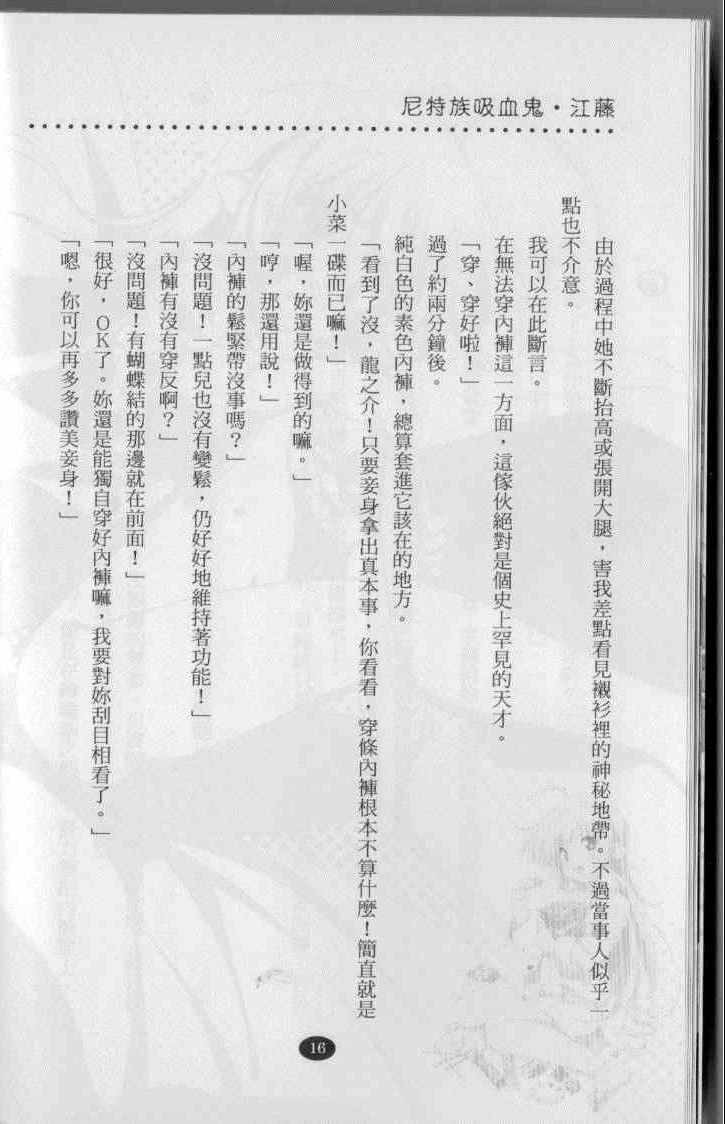 尼特族吸血鬼・江藤
由於過程中她不斷抬高或張開大腿，害我差點看見襯衫裡的神秘地帶。不過當事人似乎一
點也不介意。
我可以在此斷言。
在無法穿內褲這一方面，這傢伙絕對是個史上罕見的天才。
「穿、穿好啦！」
過了約兩分鐘後。
純白色的素色內褲，總算套進它該在的地方。
「看到了沒，龍之介！只要妾身拿出真本事，你看看，穿條內褲根本不算什麼！簡直就是
小菜一碟而已嘛！」
「喔，妳還是做得到的嘛。」
「哼，那還用說！」
「內褲的鬆緊帶沒事嗎？」
「沒問題！一點兒也沒有變鬆，仍好好地維持著功能！」
「內褲有沒有穿反啊？」
「沒問題！有蝴蝶結的那邊就在前面！」
「很好，OK了。妳還是能獨自穿好內褲嘛，我要對妳刮目相看了。」
「嗯，你可以再多多讚美妾身！」
16